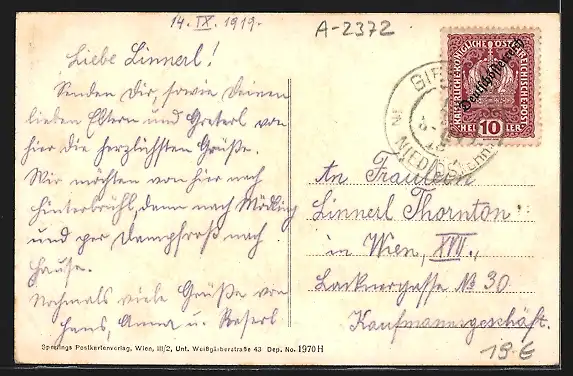 14. IX. 1919.
A-2372
Liebe Linnerl!
Senden Dir, sowie Deinen
lieben Eltern und Greterl von
hier die herzlichsten Grüße.
Wir möchten von hier nach
Hinterbrühl, dann nach Mödling
und per Dampfroß nach
Hause.
Nochmals viele Grüße von
Hans, Anna u. Reserl
KAISERLICHE KÖNIGLICHE ÖSTERREICHISCHE POST
Deutschösterreich
HEL 10 LER
NIED.
An Fräulein
Linnerl Thornton
in Wien, XVII.,
Lacknergasse № 30
Kaufmannsgeschäft.
Sperlings Postkartenverlag, Wien, III/2, Unt. Weißgärberstraße 43 Dep. No. 1970 H
19 €